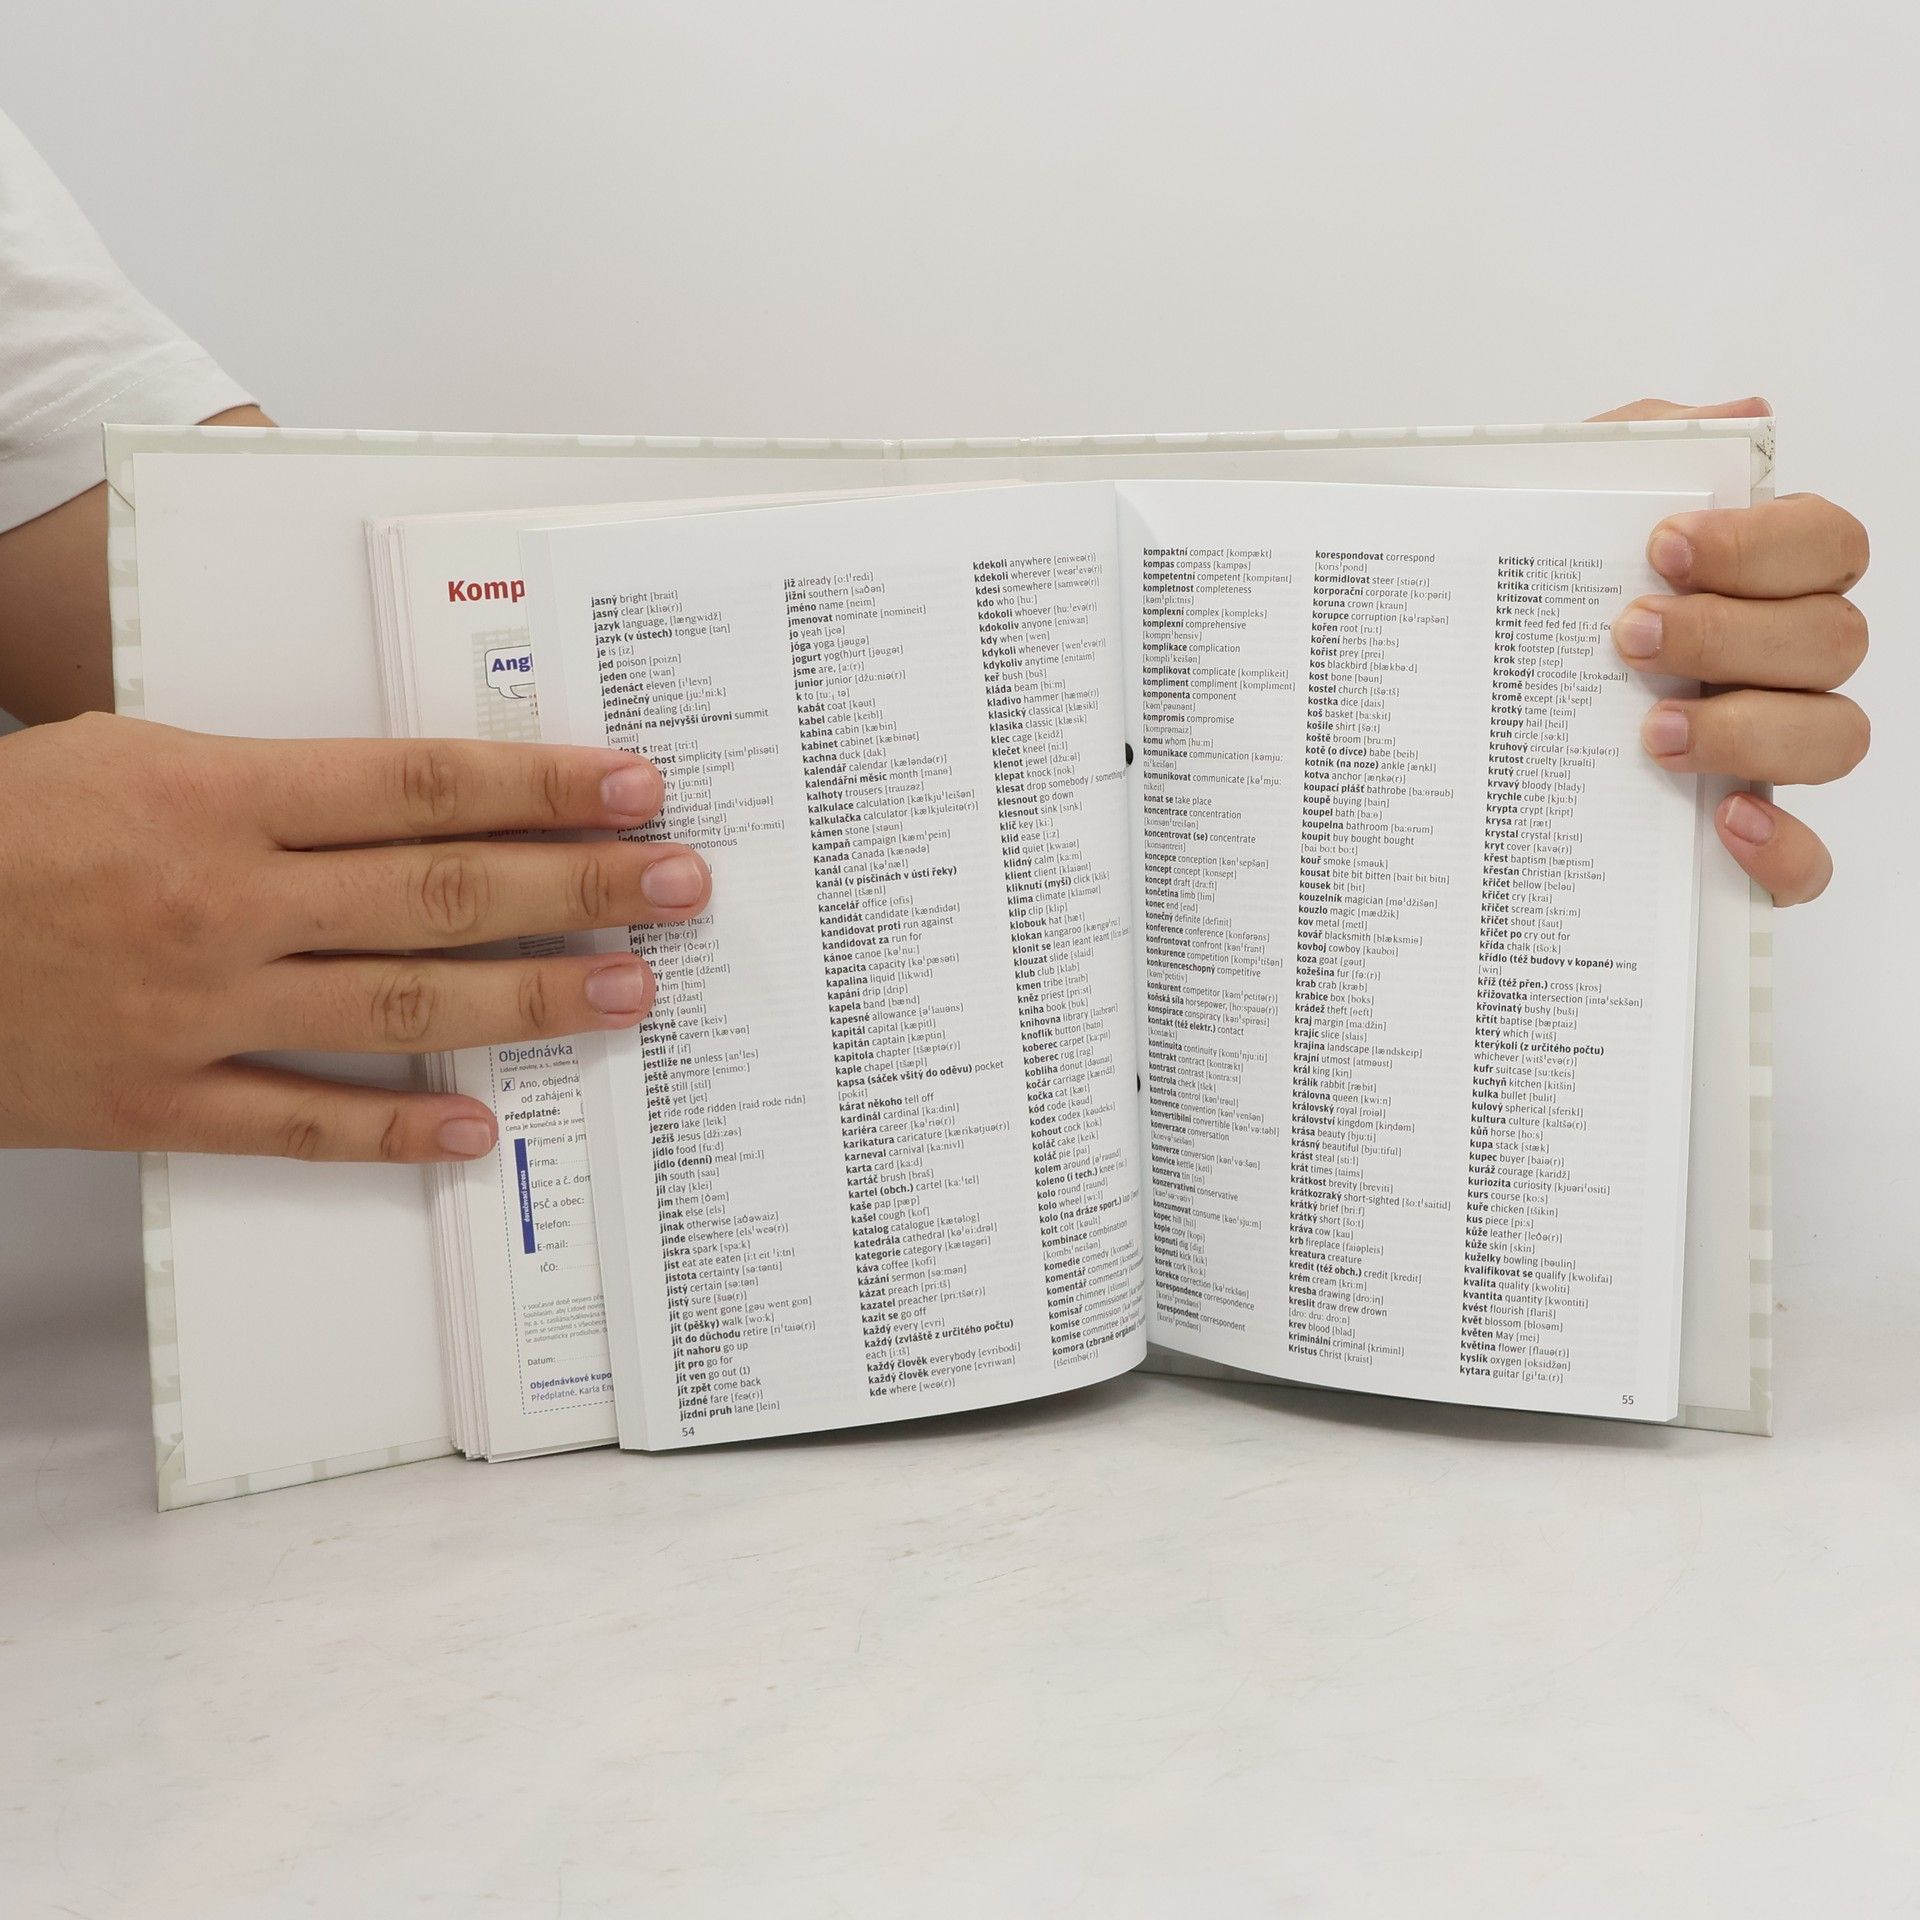 Komp
Angl
Objednávka
Lidové noviny, a. s., sídlem Ka
Ano, objedná
od zahájení k
Předplatné:
Cena je konečná a je uved
doručovací adresa
Příjmení a jm
Firma:
Ulice a č. dom
PSČ a obec:
Telefon:
E-mail:
IČO:
Datum:
Objednávkové kupo
Předplatné, Karla Eng
jasný bright [brait]
jasný clear [kliə(r)]
jazyk language, [længwidž]
jazyk (v ústech) tongue [taŋ]
je is [iz]
jed poison [poizn]
jeden one [wan]
jedenáct eleven [iˈlevn]
jedinečný unique [juːˈniːk]
jednání dealing [diːliŋ]
jednání na nejvyšší úrovni summit
[samit]
s treat [triːt]
simplicity [simˈplisəti]
simple [simpl]
[juːnit]
individual [indiˈvidjuəl]
single [singl]
jednotnost uniformity [juːniˈfoːmiti]
whose [huːz]
její her [həː(r)]
jejich their [ðeə(r)]
deer [diə(r)]
gentle [džentl]
him [him]
just [džast]
only [əunli]
jeskyně cave [keiv]
jeskyně cavern [kævən]
jestli if [if]
jestliže ne unless [anˈles]
ještě anymore [enimoː]
ještě still [stil]
ještě yet [jet]
jet ride rode ridden [raid rode ridn]
jezero lake [leik]
Ježíš Jesus [džiːzəs]
jídlo food [fuːd]
jídlo (denní) meal [miːl]
jih south [sau]
jíl clay [klei]
jim them [ðəm]
jinak else [els]
jinak otherwise [aðəwaiz]
jinde elsewhere [elsˈweə(r)]
jiskra spark [spaːk]
jíst eat ate eaten [iːt eit ˈiːtn]
jistota certainty [səːtənti]
jistý certain [səːtən]
jistý sure [šuə(r)]
jít go went gone [gəu went gon]
jít (pěšky) walk [woːk]
jít do důchodu retire [riˈtaiə(r)]
jít nahoru go up
jít pro go for
jít ven go out (1)
jít zpět come back
jízdné fare [feə(r)]
jízdní pruh lane [lein]
54
již already [oːlˈredi]
jižní southern [saðən]
jméno name [neim]
jmenovat nominate [nomineit]
jo yeah [jeə]
jóga yoga [jəugə]
jogurt yog(h)urt [jəugət]
jsme are, [aː(r)]
junior junior [džuːniə(r)]
k to [tuː, tə]
kabát coat [kəut]
kabel cable [keibl]
kabina cabin [kæbin]
kabinet cabinet [kæbinət]
kachna duck [dak]
kalendář calendar [kæləndə(r)]
kalendářní měsíc month [manθ]
kalhoty trousers [trauzəz]
kalkulace calculation [kælkjuˈleišən]
kalkulačka calculator [kælkjuleitə(r)]
kámen stone [stəun]
kampaň campaign [kæmˈpein]
Kanada Canada [kænədə]
kanál canal [kəˈnæl]
kanál (v písčinách v ústí řeky)
channel [tšænl]
kancelář office [ofis]
kandidát candidate [kændidət]
kandidovat proti run against
kandidovat za run for
kánoe canoe [kəˈnuː]
kapacita capacity [kəˈpæsəti]
kapalina liquid [likwid]
kapání drip [drip]
kapela band [bænd]
kapesné allowance [əˈlauəns]
kapitál capital [kæpitl]
kapitán captain [kæptin]
kapitola chapter [tšæptə(r)]
kaple chapel [tšæpl]
kapsa (sáček všitý do oděvu) pocket
[pokit]
kárat někoho tell off
kardinál cardinal [kaːdinl]
kariéra career [kəˈriə(r)]
karikatura caricature [kærikətjuə(r)]
karneval carnival [kaːnivl]
karta card [kaːd]
kartáč brush [braš]
kartel (obch.) cartel [kaːˈtel]
kaše pap [pæp]
kašel cough [kof]
katalog catalogue [kætəlog]
katedrála cathedral [kəˈθiːdrəl]
kategorie category [kætəgəri]
káva coffee [kofi]
kázání sermon [səːmən]
kázat preach [priːtš]
kazatel preacher [priːtšə(r)]
kazit se go off
každý every [evri]
každý (zvláště z určitého počtu)
each [iːtš]
každý člověk everybody [evribodi]
každý člověk everyone [evriwan]
kde where [weə(r)]
kdekoli anywhere [eniweə(r)]
kdekoli wherever [weərˈevə(r)]
kdesi somewhere [samweə(r)]
kdo who [huː]
kdokoli whoever [huːˈevə(r)]
kdokoliv anyone [eniwan]
kdy when [wen]
kdykoli whenever [wenˈevə(r)]
kdykoliv anytime [enitaim]
keř bush [buš]
kláda beam [biːm]
kladivo hammer [hæmə(r)]
klasický classical [klæsikl]
klasika classic [klæsik]
klec cage [keidž]
klečet kneel [niːl]
klenot jewel [džuːəl]
klepat knock [nok]
klesat drop somebody / something
klesnout go down
klesnout sink [siŋk]
klíč key [kiː]
klid ease [iːz]
klid quiet [kwaiət]
klidný calm [kaːm]
klient client [klaiənt]
kliknutí (myší) click [klik]
klima climate [klaimət]
klip clip [klip]
klobouk hat [hæt]
klokan kangaroo [kæŋgəˈruː]
klonit se lean leant leant
klouzat slide [slaid]
klub club [klab]
kmen tribe [traib]
kněz priest [priːst]
kniha book [buk]
knihovna library [laibrəri]
knoflík button [batn]
koberec carpet [kaːpit]
koberec rug [rag]
kobliha donut [dəunat]
kočár carriage [kæridž]
kočka cat [kæt]
kód code [kəud]
kodex codex [kəudeks]
kohout cock [kok]
koláč cake [keik]
koláč pie [pai]
kolem around [əˈraund]
koleno (i tech.) knee [niː]
kolo round [raund]
kolo wheel [wiːl]
kolo (na dráze sport.) lap
kolt colt [kəult]
kombinace combination
[kombiˈneišən]
komedie comedy [komədi]
komentář comment [koment]
komentář commentary
komín chimney [tšimni]
komisař commissioner
komise commission
komise committee
komora (zbraně orgánu)
[tšeimbə(r)]
kompaktní compact [kompækt]
kompas compass [kampəs]
kompetentní competent [kompitənt]
kompletnost completeness
[kəmˈpliːtnis]
komplexní complex [kompleks]
komplexní comprehensive
[kompriˈhensiv]
komplikace complication
[kompliˈkeišən]
komplikovat complicate [komplikeit]
kompliment compliment [kompliment]
komponenta component
[kəmˈpəunənt]
kompromis compromise
[komprəmaiz]
komu whom [huːm]
komunikace communication [kəmjuː
niˈkeišən]
komunikovat communicate [kəˈmjuː
nikeit]
konat se take place
koncentrace concentration
[konsənˈtreišən]
koncentrovat (se) concentrate
[konsəntreit]
koncepce conception [kənˈsepšən]
koncept concept [konsept]
koncept draft [draːft]
končetina limb [lim]
konec end [end]
konečný definite [definit]
konference conference [konfərəns]
konfrontovat confront [kənˈfrant]
konkurence competition [kompiˈtišən]
konkurenceschopný competitive
[kəmˈpetitiv]
konkurent competitor [kəmˈpetitə(r)]
koňská síla horsepower, [hoːspauə(r)]
konspirace conspiracy [kənˈspirəsi]
kontakt (též elektr.) contact
[kontækt]
kontinuita continuity [kontiˈnjuːiti]
kontrakt contract [kontrækt]
kontrast contrast [kontraːst]
kontrola check [tšek]
kontrola control [kənˈtrəul]
konvence convention [kənˈvenšən]
konvertibilní convertible [kənˈvəːtəbl]
konverzace conversation
[konvəˈseišən]
konverze conversion [kənˈvəːšən]
konvice kettle [ketl]
konzerva tin [tin]
konzervativní conservative
[kənˈsəːvətiv]
konzumovat consume [kənˈsjuːm]
kopec hill [hil]
kopie copy [kopi]
kopnutí dig [dig]
kopnutí kick [kik]
korek cork [koːk]
korekce correction [kəˈrekšən]
korespondence correspondence
[korisˈpondəns]
korespondent correspondent
[korisˈpondənt]
korespondovat correspond
[korisˈpond]
kormidlovat steer [stiə(r)]
korporační corporate [koːpərit]
koruna crown [kraun]
korupce corruption [kəˈrapšən]
kořen root [ruːt]
koření herbs [həːbs]
kořist prey [prei]
kos blackbird [blækbəːd]
kost bone [bəun]
kostel church [tšəːtš]
kostka dice [dais]
koš basket [baːskit]
košile shirt [šəːt]
koště broom [bruːm]
kotě (o dívce) babe [beib]
kotník (na noze) ankle [æŋkl]
kotva anchor [æŋkə(r)]
koupací plášť bathrobe [baːθrəub]
koupě buying [baiŋ]
koupel bath [baːθ]
koupelna bathroom [baːθrum]
koupit buy bought bought
[bai boːt boːt]
kouř smoke [sməuk]
kousat bite bit bitten [bait bit bitn]
kousek bit [bit]
kouzelník magician [məˈdžišən]
kouzlo magic [mædžik]
kov metal [metl]
kovář blacksmith [blæksmiθ]
kovboj cowboy [kauboi]
koza goat [gəut]
kožešina fur [fəː(r)]
krab crab [kræb]
krabice box [boks]
krádež theft [θeft]
kraj margin [maːdžin]
krajíc slice [slais]
krajina landscape [lændskeip]
krajní utmost [atməust]
král king [kiŋ]
králík rabbit [ræbit]
královna queen [kwiːn]
královský royal [roiəl]
království kingdom [kiŋdəm]
krása beauty [bjuːti]
krásný beautiful [bjuːtiful]
krást steal [stiːl]
krát times [taims]
krátkost brevity [breviti]
krátkozraký short-sighted [šoːtˈsaitid]
krátký brief [briːf]
krátký short [šoːt]
kráva cow [kau]
krb fireplace [faiəpleis]
kreatura creature
kredit (též obch.) credit [kredit]
krém cream [kriːm]
kresba drawing [droːiŋ]
kreslit draw drew drown
[droː druː droːn]
krev blood [blad]
kriminální criminal [kriminl]
Kristus Christ [kraist]
kritický critical [kritikl]
kritik critic [kritik]
kritika criticism [kritisizəm]
kritizovat comment on
krk neck [nek]
krmit feed fed fed [fiːd fed
kroj costume [kostjuːm]
krok footstep [futstep]
krok step [step]
krokodýl crocodile [krokədail]
kromě besides [biˈsaidz]
kromě except [ikˈsept]
krotký tame [teim]
kroupy hail [heil]
kruh circle [səːkl]
kruhový circular [səːkjulə(r)]
krutost cruelty [kruəlti]
krutý cruel [kruəl]
krvavý bloody [blady]
krychle cube [kjuːb]
krypta crypt [kript]
krysa rat [ræt]
krystal crystal [kristl]
kryt cover [kavə(r)]
křest baptism [bæptism]
křesťan Christian [kristšən]
křičet bellow [beləu]
křičet cry [krai]
křičet scream [skriːm]
křičet shout [šaut]
křičet po cry out for
křída chalk [tšoːk]
křídlo (též budovy v kopané) wing
[win]
kříž (též přen.) cross [kros]
křižovatka intersection [intəˈsekšən]
křovinatý bushy [buši]
křtít baptise [bæptaiz]
který which [witš]
kterýkoli (z určitého počtu)
whichever [witšˈevə(r)]
kufr suitcase [suːtkeis]
kuchyň kitchen [kitšin]
kulka bullet [bulit]
kulový spherical [sferikl]
kultura culture [kaltšə(r)]
kůň horse [hoːs]
kupa stack [stæk]
kupec buyer [baiə(r)]
kuráž courage [karidž]
kuriozita curiosity [kjuəriˈositi]
kurs course [koːs]
kuře chicken [tšikin]
kus piece [piːs]
kůže leather [leðə(r)]
kůže skin [skin]
kuželky bowling [bəulin]
kvalifikovat se qualify [kwolifai]
kvalita quality [kwoliti]
kvantita quantity [kwontiti]
kvést flourish [flariš]
květ blossom [blosəm]
květen May [mei]
květina flower [flauə(r)]
kyslík oxygen [oksidžən]
kytara guitar [giˈtaː(r)]
55